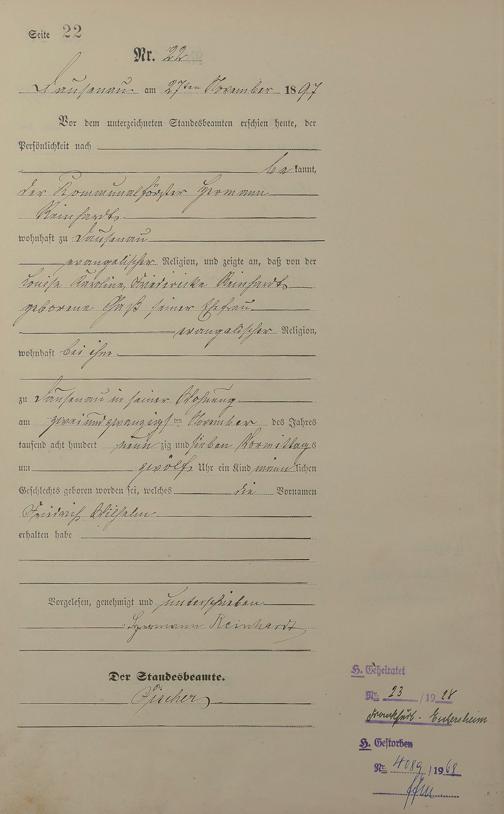 Seite 22
Nr. 22
Dausenau am 27ten November 1897
Vor dem unterzeichneten Standesbeamten erschien heute, der
Persönlichkeit nach
bekannt,
der Kommunalförster Hermann
Reinhardt
wohnhaft zu Dausenau
evangelischer Religion, und zeigte an, daß von der
Louise Karoline Friedericke Reinhardt
geborene Gaß seiner Ehefrau
evangelischer Religion,
wohnhaft bei ihm
zu Dausenau in seiner Wohnung
am zweiundzwanzigsten November des Jahres
tausend acht hundert neunzig und sieben Vormittags
um zwölf Uhr ein Kind männlichen
Geschlechts geboren worden sei, welches die Vornamen
Friedrich Wilhelm
erhalten habe
Vorgelesen, genehmigt und unterschrieben
Hermann Reinhardt
Der Standesbeamte.
Fischer
H. Geheiratet
Nr. 23 / 1928
Frankfurt-
H. Gestorben
Nr. 4089 / 1968
Ffm